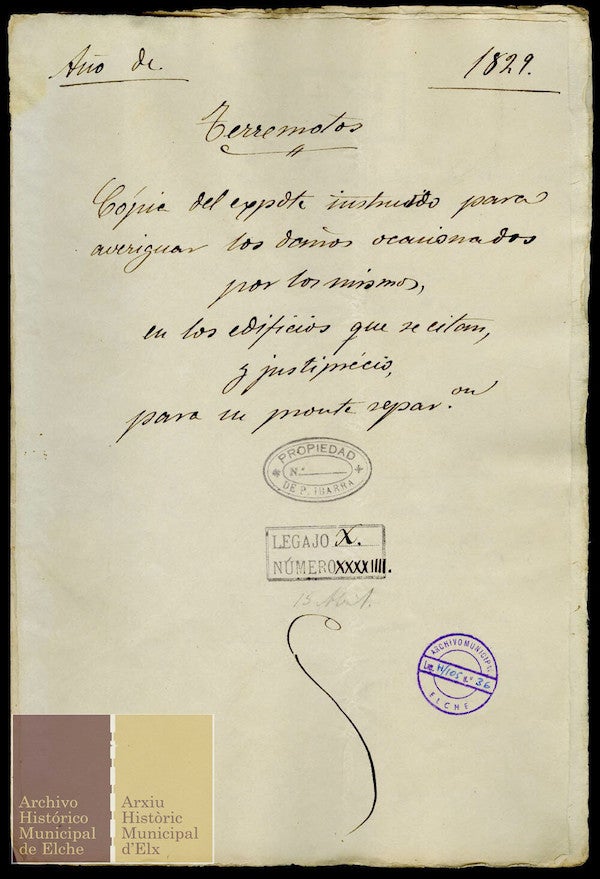 Año de. 1829.
Terremotos
Cópia del expdte instruido para
averiguar los daños ocasionados
por los mismos,
en los edificios que se citan,
y justiprécio,
para su pronte repar.on
PROPIEDAD
N.º
DE P. IBARRA
LEGAJO X.
NÚMERO XXXXIIII.
13 Abril.
ARCHIVO MUNICIPAL
Leg. H/105 N.º 36
ELCHE
Archivo
Histórico
Municipal
de Elche
Arxiu
Històric
Municipal
d'Elx